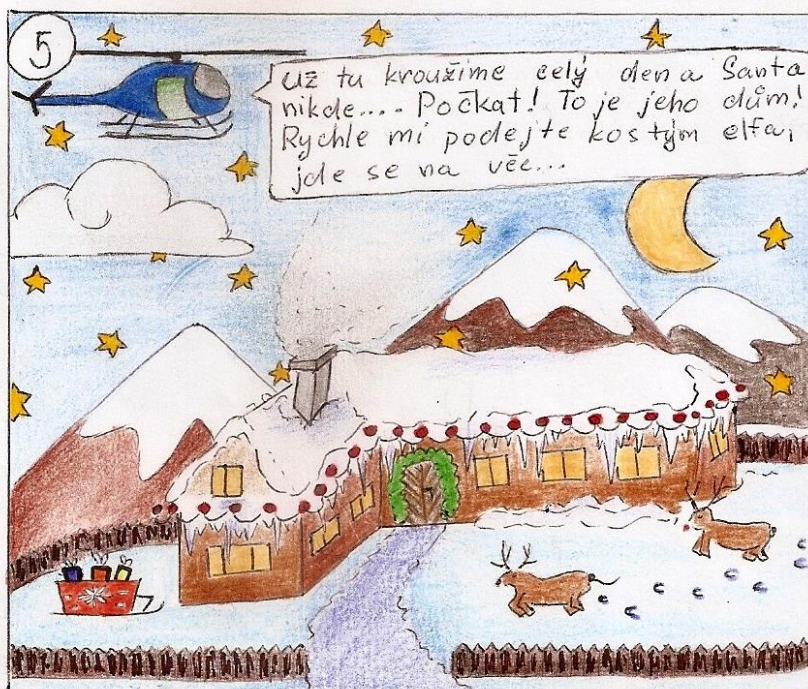 5
Už tu kroužíme celý den a Santa
nikde.... Počkat! To je jeho dům!
Rychle mi podejte kostým elfa,
jde se na věc...